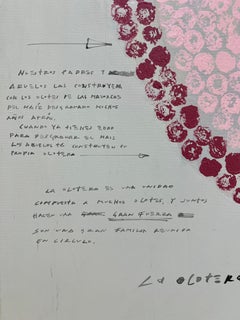 NUESTROS PADRES Y
ABUELOS LAS CONSTRUYERON
CON LOS OLOTES DE LAS MAZORCAS
DEL MAÍZ DESGRANADO MUCHOS
AÑOS ATRÁS.
CUANDO YA TIENES TODO
PARA DESGRANAR EL MAIZ
LOS ABUELOS TE CONSTRUYEN SU
PROPIA OLOTERA
LA OLOTERA ES UNA UNIDAD
COMPUESTA X MUCHOS OLOTES, Y JUNTOS
HACEN UNA GRAN FUERZA
SON UNA GRAN FAMILIA REUNIDA
EN CÍRCULO.
LA OLOTERA